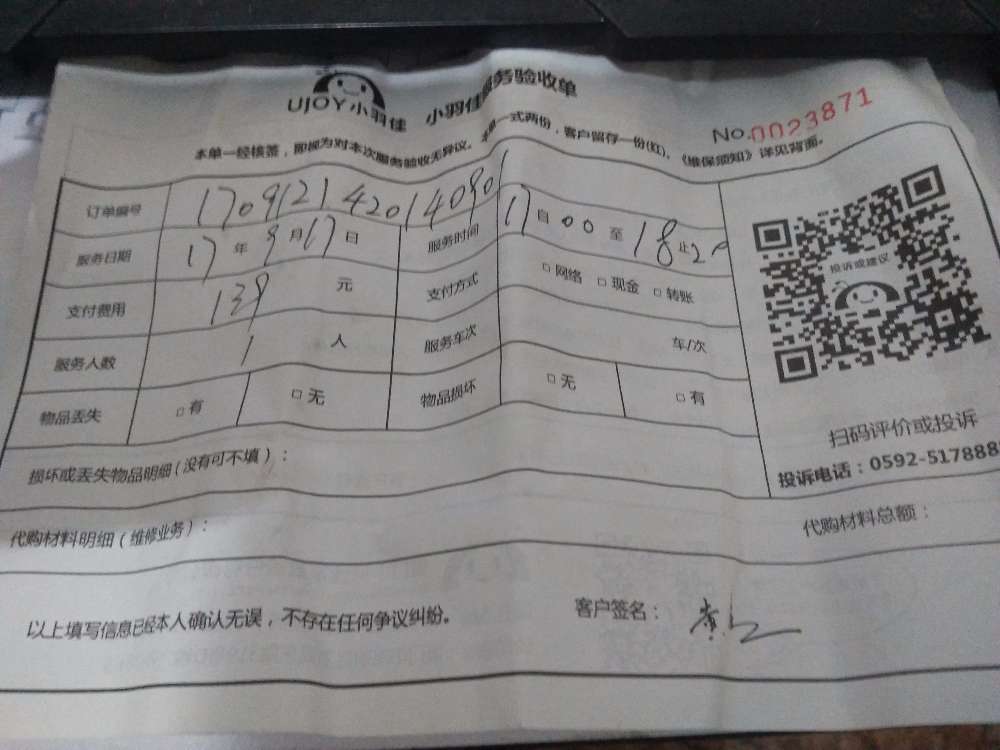 UJOY小羽佳 小羽佳服务验收单
No.0023871
本单一经核签，即视为对本次服务验收无异议。本单一式两份，客户留存一份(红)，《维保须知》详见背面。
订单编号 170912142014090
服务日期 17年9月17日 服务时间 17自00至18止20
支付费用 139元 支付方式 □网络 □现金 □转账
服务人数 1人 服务车次 车/次
物品丢失 □有 □无 物品损坏 □无 □有
投诉或建议
扫码评价或投诉
投诉电话：0592-5178888
损坏或丢失物品明细(没有可不填)：
代购材料明细(维修业务)： 代购材料总额：
以上填写信息已经本人确认无误，不存在任何争议纠纷。 客户签名：